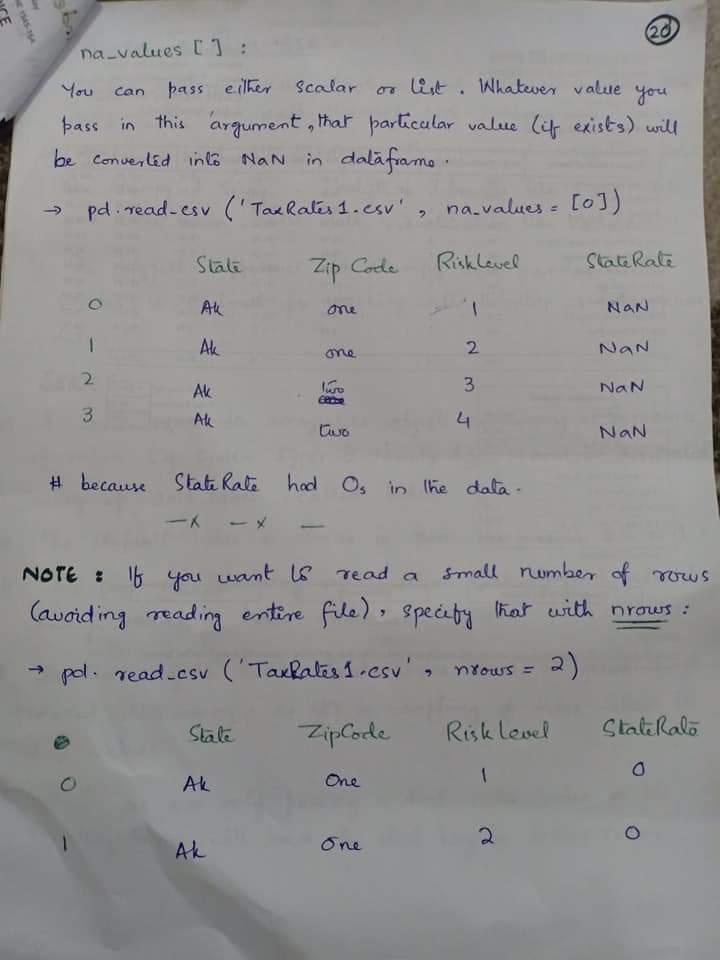 20
na_values [ ] :
You can pass either scalar or list. Whatever value you
pass in this argument, that particular value (if exists) will
be converted into NaN in dataframe.
→ pd.read_csv ('TaxRates1.csv', na_values = [0])
State Zip Code RiskLevel StateRate
0 Ak one 1 NaN
1 Ak one 2 NaN
2 Ak two 3 NaN
3 Ak two 4 NaN
# because StateRate had 0s in the data.
—x —x —
NOTE : If you want to read a small number of rows
(avoiding reading entire file), specify that with nrows :
→ pd.read_csv ('TaxRates1.csv', nrows = 2)
State ZipCode RiskLevel StateRate
0 Ak One 1 0
1 Ak One 2 0